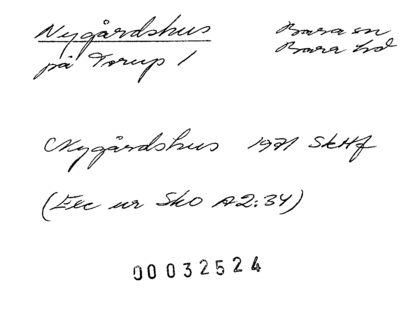 Nygårdshus
på Torup 1
Bara sn
Bara hd
Nygårdshus 1971 SkHf
(Exc ur SkO A2:34)
00032524